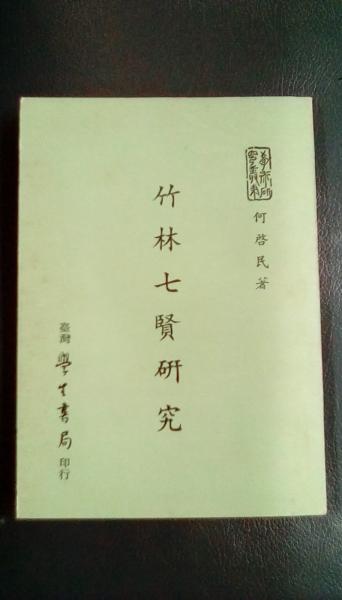 何啓民著
竹林七賢研究
臺灣學生書局印行